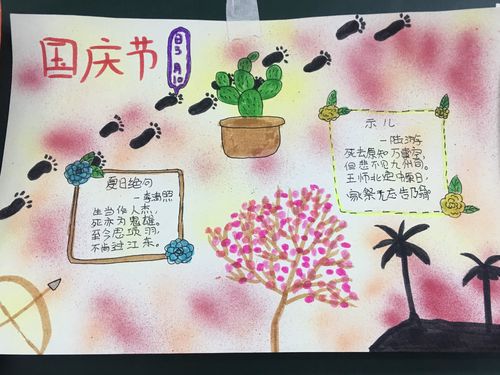 国庆节
10月3日
夏日绝句
—李清照
生当作人杰,
死亦为鬼雄。
至今思项羽,
不肯过江东。
示儿
—陆游
死去原知万事空,
但悲不见九州同。
王师北定中原日,
家祭无忘告乃翁